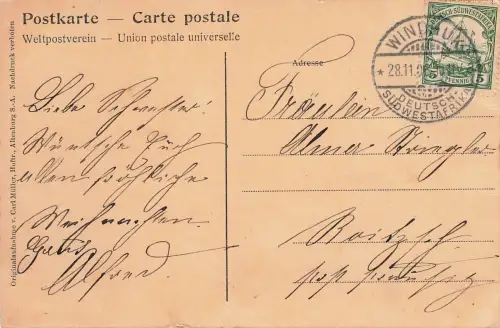 Postkarte — Carte postale
Weltpostverein — Union postale universelle
Originalaufnahme v. Carl Müller, Hofto, Altenburg S.-A. Nachdruck verboten.
Liebe Schwester!
Wünsche Euch
allen fröhliche
Weihnachten.
Gruß
Alfred.
Adresse
Fräulein
Alma
DEUTSCH-SÜDWESTAFRIKA
5 PFENNIG 5
WINDHUK
* 28.11.
DEUTSCH-
SÜDWESTAFRIKA